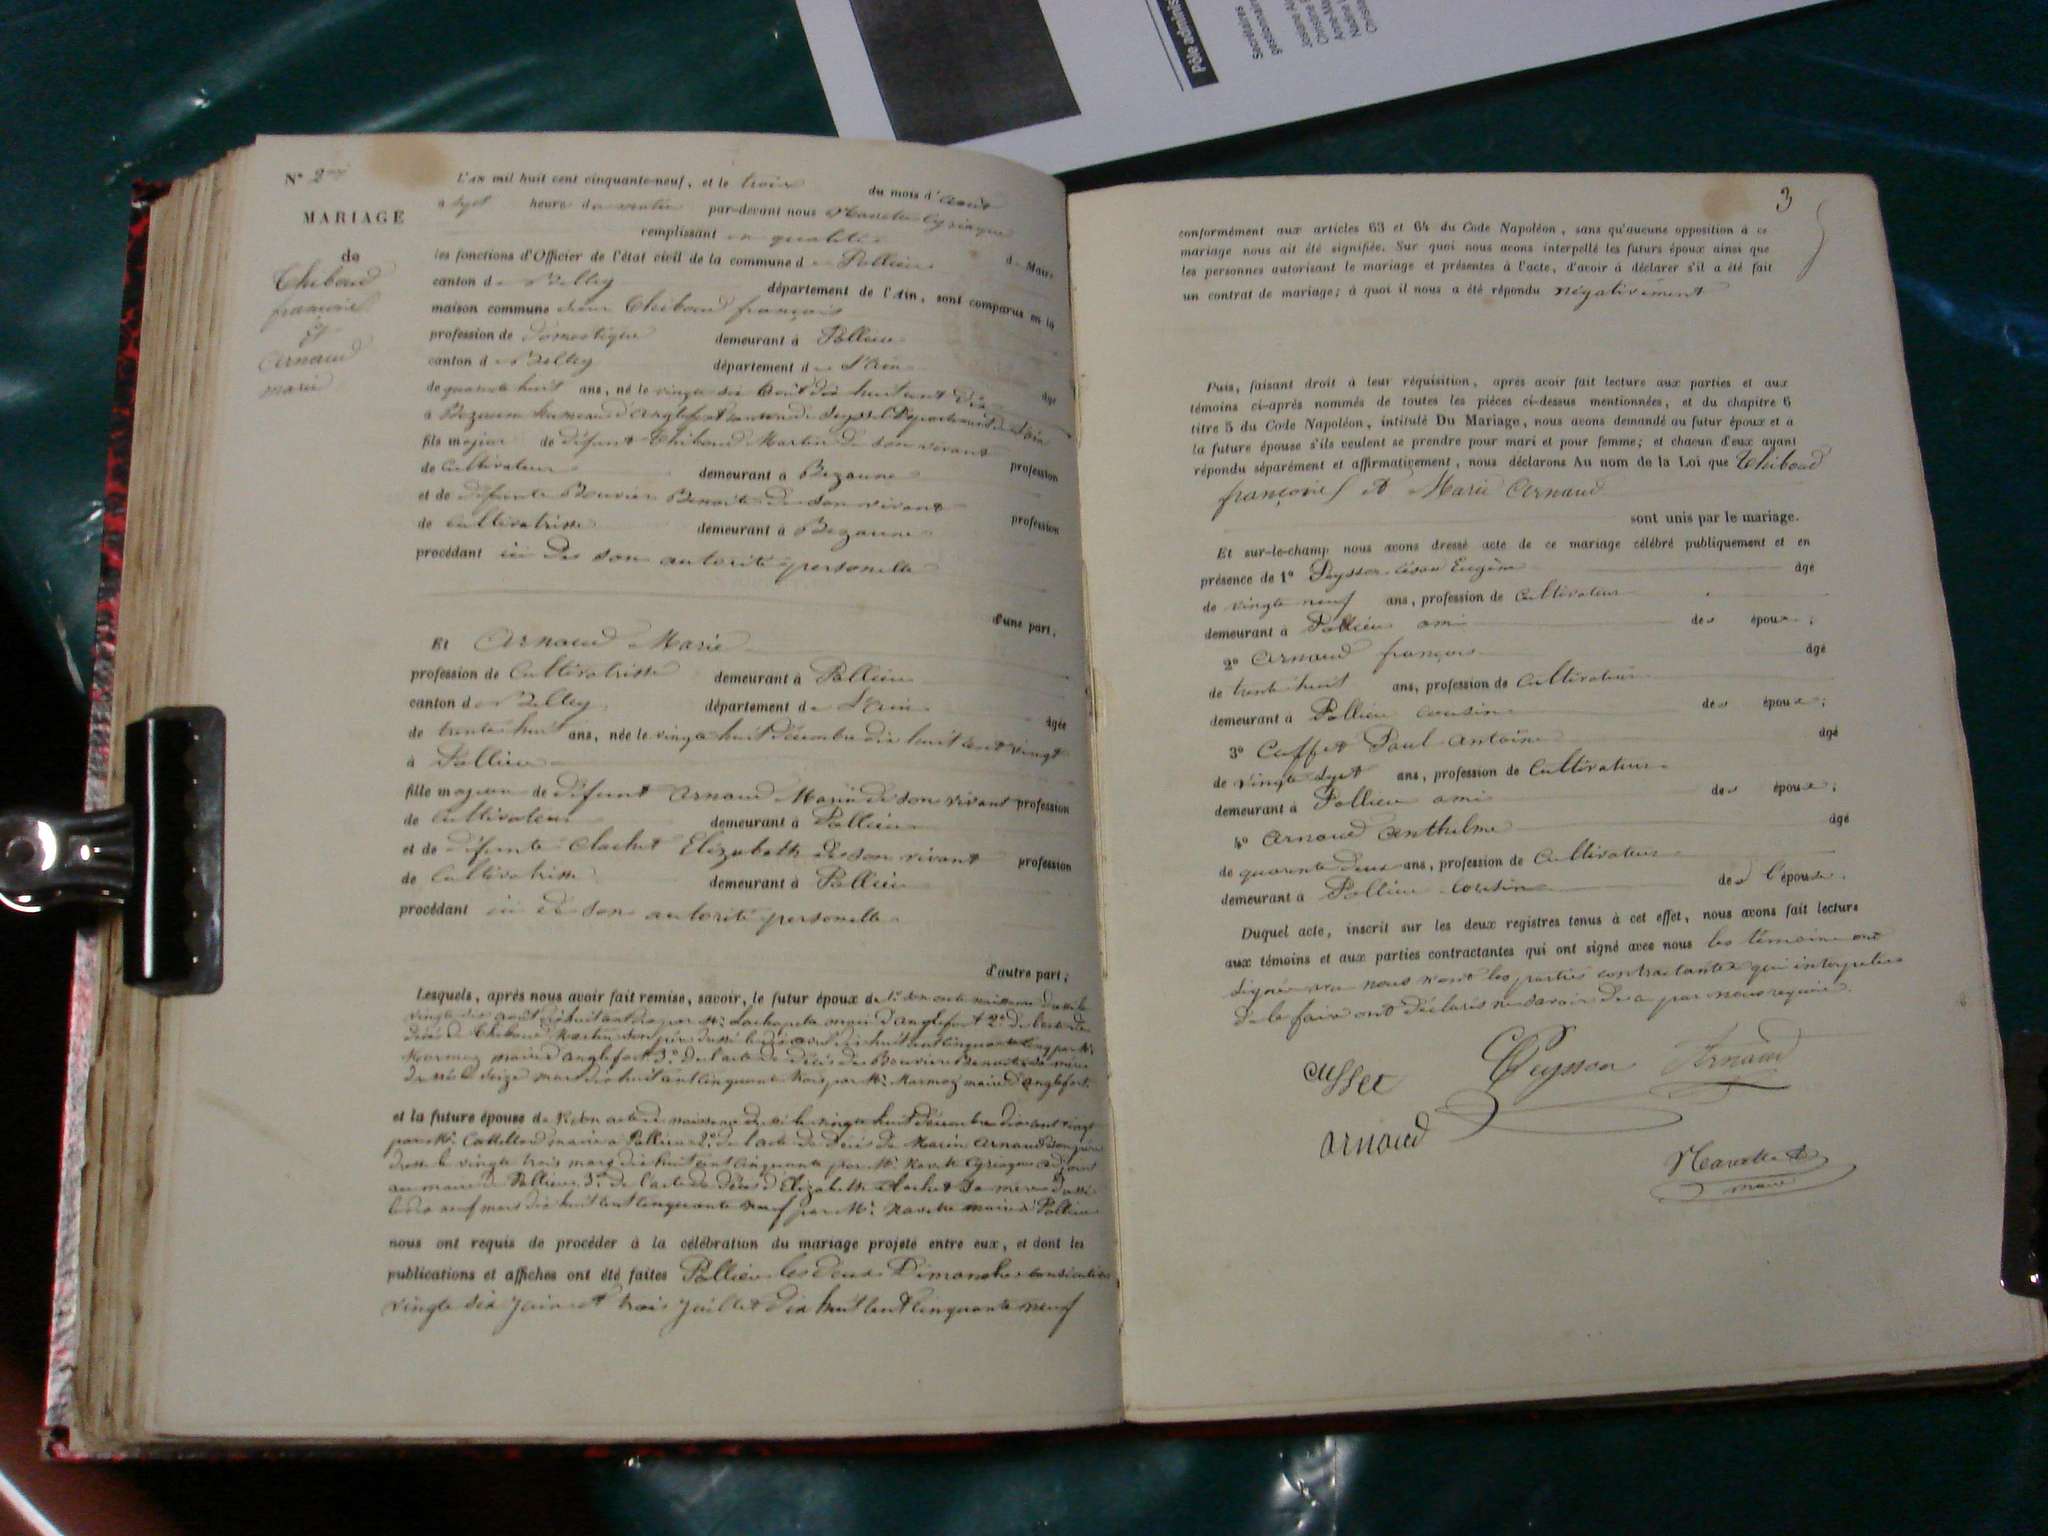 Pôle adminis
Secrétaires
gestionnair
N° 2
MARIAGE
de
Thiboud
françois
et
Arnaud
marie
L'AN mil huit cent cinquante-neuf, et le trois du mois d'août
à sept heure du matin par-devant nous Navette Cyriaque
remplissant en qualité de Maire
les fonctions d'Officier de l'état civil de la commune de Pollieu
canton de Belley département de l'Ain, sont comparus en la
maison commune sieur Thiboud françois
profession de domestique demeurant à Pollieu
canton de Belley département de L'Ain âgé
de quarante huit ans, né le vingt six août dix huit cent dix
à Bezonne hameau d'Anglefort canton de Seyssel Département de l'Ain
fils majeur de défunt Thiboud Martin de son vivant profession
de Cultivateur demeurant à Bezonne
et de défunte Bouvier Benoite de son vivant profession
de Cultivatrisse demeurant à Bezonne
procédant ici de son autorité personelle
d'une part,
Et Arnaud Marie
profession de Cultivatrisse demeurant à Pollieu
canton de Belley département de L'Ain âgée
de trente huit ans, née le vingt huit décembre dix huit cent vingt
à Pollieu
fille majeure de défunt Arnaud Marin de son vivant profession
de Cultivateur demeurant à Pollieu
et de défunte Clachet Elizabeth de son vivant profession
de Cultivatrisse demeurant à Pollieu
procédant ici de son autorité personelle
d'autre part;
Lesquels, après nous avoir fait remise, savoir, le futur époux de 1° son acte naissance dressé le
vingt six août dix huit cent dix par Mr. maire d'anglefort 2° de l'acte de
décès de Thiboud Martin son père dressé le dix huit cent cinquante cinq par Mr
maire d'anglefort 3° de l'acte de décès de Bouvier Benoite sa mère
dressé le seize mars dix huit cent cinquante trois par Mr. maire d'anglefort
et la future épouse de 1° son acte de naissance dressé le vingt huit décembre dix cent vingt
par Mr. maire à Pollieu 2° de l'acte de décès de Marin Arnaud son père
dressé le vingt trois mars dix huit cent cinquante par Mr. Navette Cyriaque adjoint
au maire de Pollieu 3° de l'acte de décès d'Elizabeth Clachet sa mère dressé
le dix neuf mars dix huit cent cinquante neuf par Mr. Navette maire à Pollieu
nous ont requis de procéder à la célébration du mariage projeté entre eux, et dont les
publications et affiches ont été faites Pollieu les deux Dimanches consécutifs
vingt six juin et trois juillet dix huit cent cinquante neuf
3
conformément aux articles 63 et 64 du Code Napoléon, sans qu'aucune opposition à ce
mariage nous ait été signifiée. Sur quoi nous avons interpellé les futurs époux ainsi que
les personnes autorisant le mariage et présentes à l'acte, d'avoir à déclarer s'il a été fait
un contrat de mariage; à quoi il nous a été répondu négativement
Puis, faisant droit à leur réquisition, après avoir fait lecture aux parties et aux
témoins ci-après nommés de toutes les pièces ci-dessus mentionnées, et du chapitre 6
titre 5 du Code Napoléon, intitulé Du Mariage, nous avons demandé au futur époux et a
la future épouse s'ils veulent se prendre pour mari et pour femme; et chacun d'eux ayant
répondu séparément et affirmativement, nous déclarons Au nom de la Loi que Thiboud
françois et Marie Arnaud
sont unis par le mariage.
Et sur-le-champ nous avons dressé acte de ce mariage célébré publiquement et en
présence de 1° Peysson César Eugène âgé
de vingt neuf ans, profession de Cultivateur
demeurant à Pollieu ami des époux;
2° Arnaud françois âgé
de trente huit ans, profession de Cultivateur
demeurant à Pollieu cousin des époux;
3° Cusset Paul Antoine âgé
de vingt sept ans, profession de Cultivateur
demeurant à Pollieu ami des époux;
4° Arnaud Anthelme âgé
de quarante deux ans, profession de Cultivateur
demeurant à Pollieu cousin de l'épouse.
Duquel acte, inscrit sur les deux registres tenus à cet effet, nous avons fait lecture
aux témoins et aux parties contractantes qui ont signé avec nous les témoins ont
signé avec nous les parties contractantes qui interpellés
de le faire ont déclaré ne savoir de ce par nous requis.
cusset Peysson Arnaud
arnaud
Navette
maire